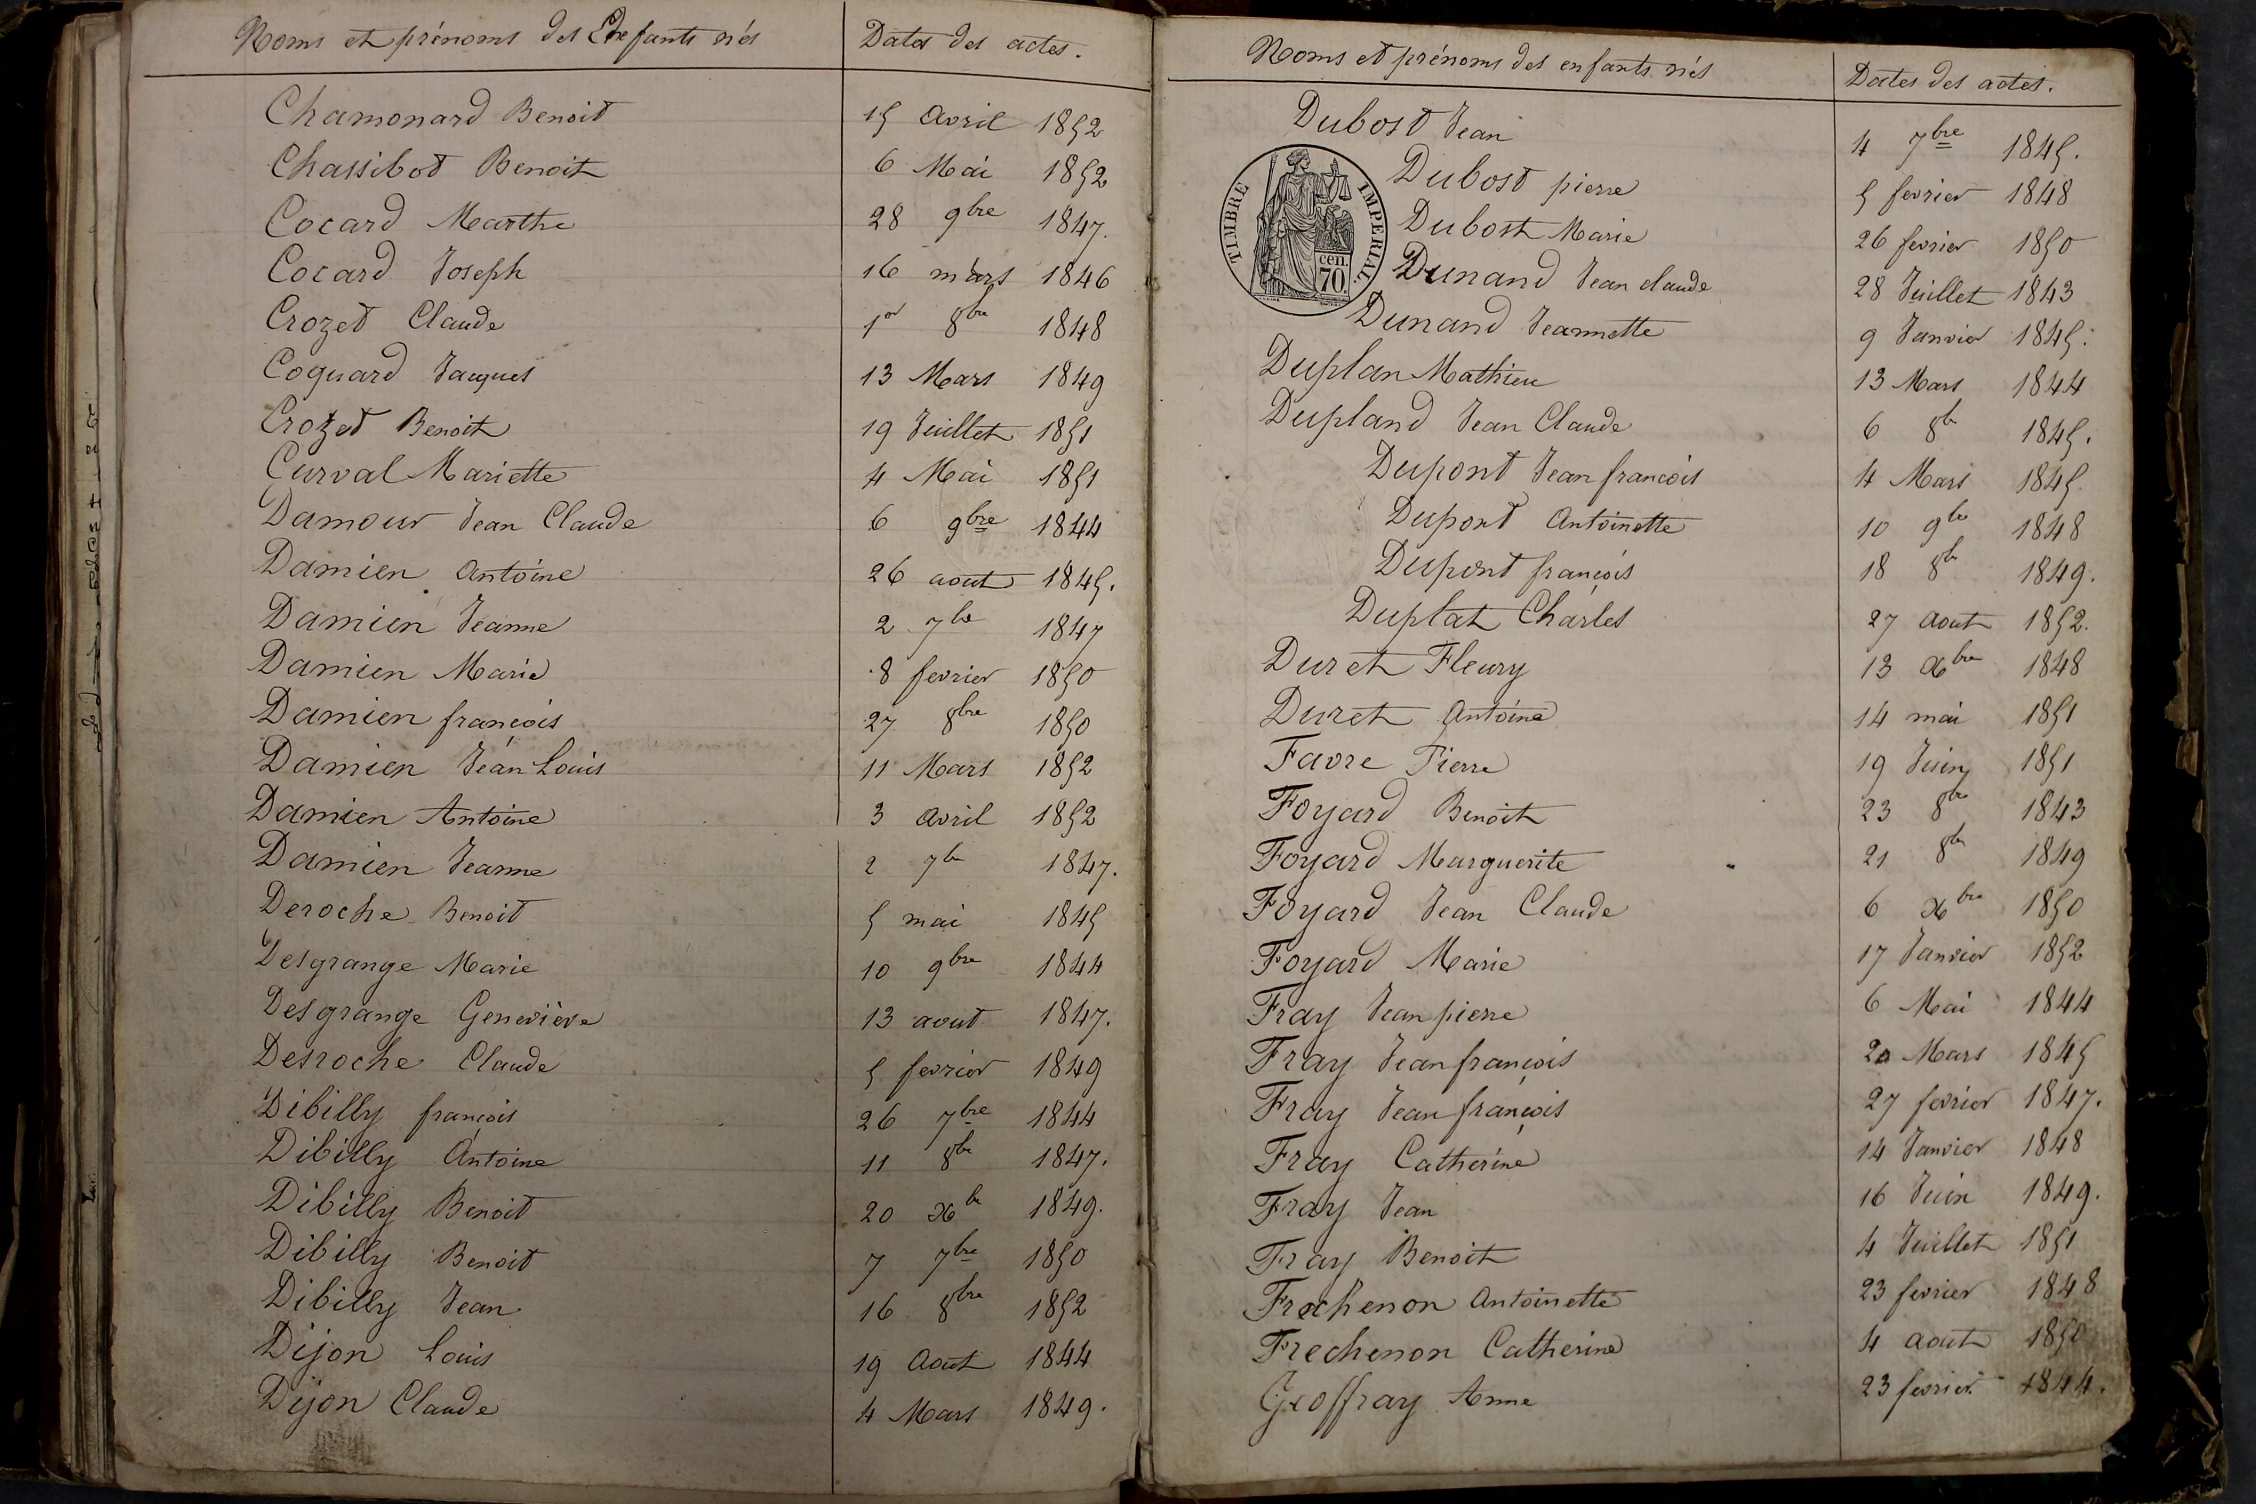 Noms et prénoms des Enfants nés Dates des actes.
Chamonard Benoit 15 Avril 1852
Chassibot Benoit 6 Mai 1852
Cocard Marthe 28 9bre 1847.
Cocard Joseph 16 mars 1846
Crozet Claude 1er 8bre 1848
Coquard Jacques 13 Mars 1849
Crozet Benoit 19 Juillet 1851
Curval Mariette 4 Mai 1851
Damour Jean Claude 6 9bre 1844
Damien Antoine 26 aout 1845.
Damien Jeanne 2 7bre 1847
Damien Marie 8 fevrier 1850
Damien françois 27 8bre 1850
Damien Jean Louis 11 Mars 1852
Damien Antoine 3 Avril 1852
Damien Jeanne 2 7bre 1847.
Deroche Benoit 5 mai 1845
Desgrange Marie 10 9bre 1844
Desgrange Geneviève 13 aout 1847.
Desroche Claude 5 fevrier 1849
Dibilly françois 26 7bre 1844
Dibilly Antoine 11 8bre 1847.
Dibilly Benoit 20 Xbre 1849.
Dibilly Benoit 7 7bre 1850
Dibilly Jean 16 8bre 1852
Dijon Louis 19 Aout 1844
Dijon Claude 4 Mars 1849.
Noms et prénoms des enfants nés Dates des actes.
Dubost Jean 4 7bre 1845.
Dubost pierre 5 fevrier 1848
Dubost Marie 26 fevrier 1850
Dunand Jean claude 28 Juillet 1843
TIMBRE IMPERIAL.
cen.
70.
Dunand Jeannette 9 Janvier 1845.
Duplan Mathieu 13 Mars 1844
Dupland Jean Claude 6 8bre 1845.
Dupont Jean francois 4 Mars 1845
Dupont Antoinette 10 9bre 1848
Dupont françois 18 8bre 1849.
Duplat Charles 27 Aout 1852.
Duret Fleury 13 Xbre 1848
Duret Antoine 14 mai 1851
Favre Pierre 19 Juin 1851
Foyard Benoit 23 8bre 1843
Foyard Marguerite 21 8bre 1849
Foyard Jean Claude 6 Xbre 1850
Foyard Marie 17 Janvier 1852
Fray Jean pierre 6 Mai 1844
Fray Jean françois 20 Mars 1845
Fray Jean françois 27 fevrier 1847.
Fray Catherine 14 Janvier 1848
Fray Jean 16 Juin 1849.
Fray Benoit 4 Juillet 1851
Frechenon Antoinette 23 fevrier 1848
Frechenon Catherine 4 aout 1850
Geoffray Anne 23 fevrier 1844.